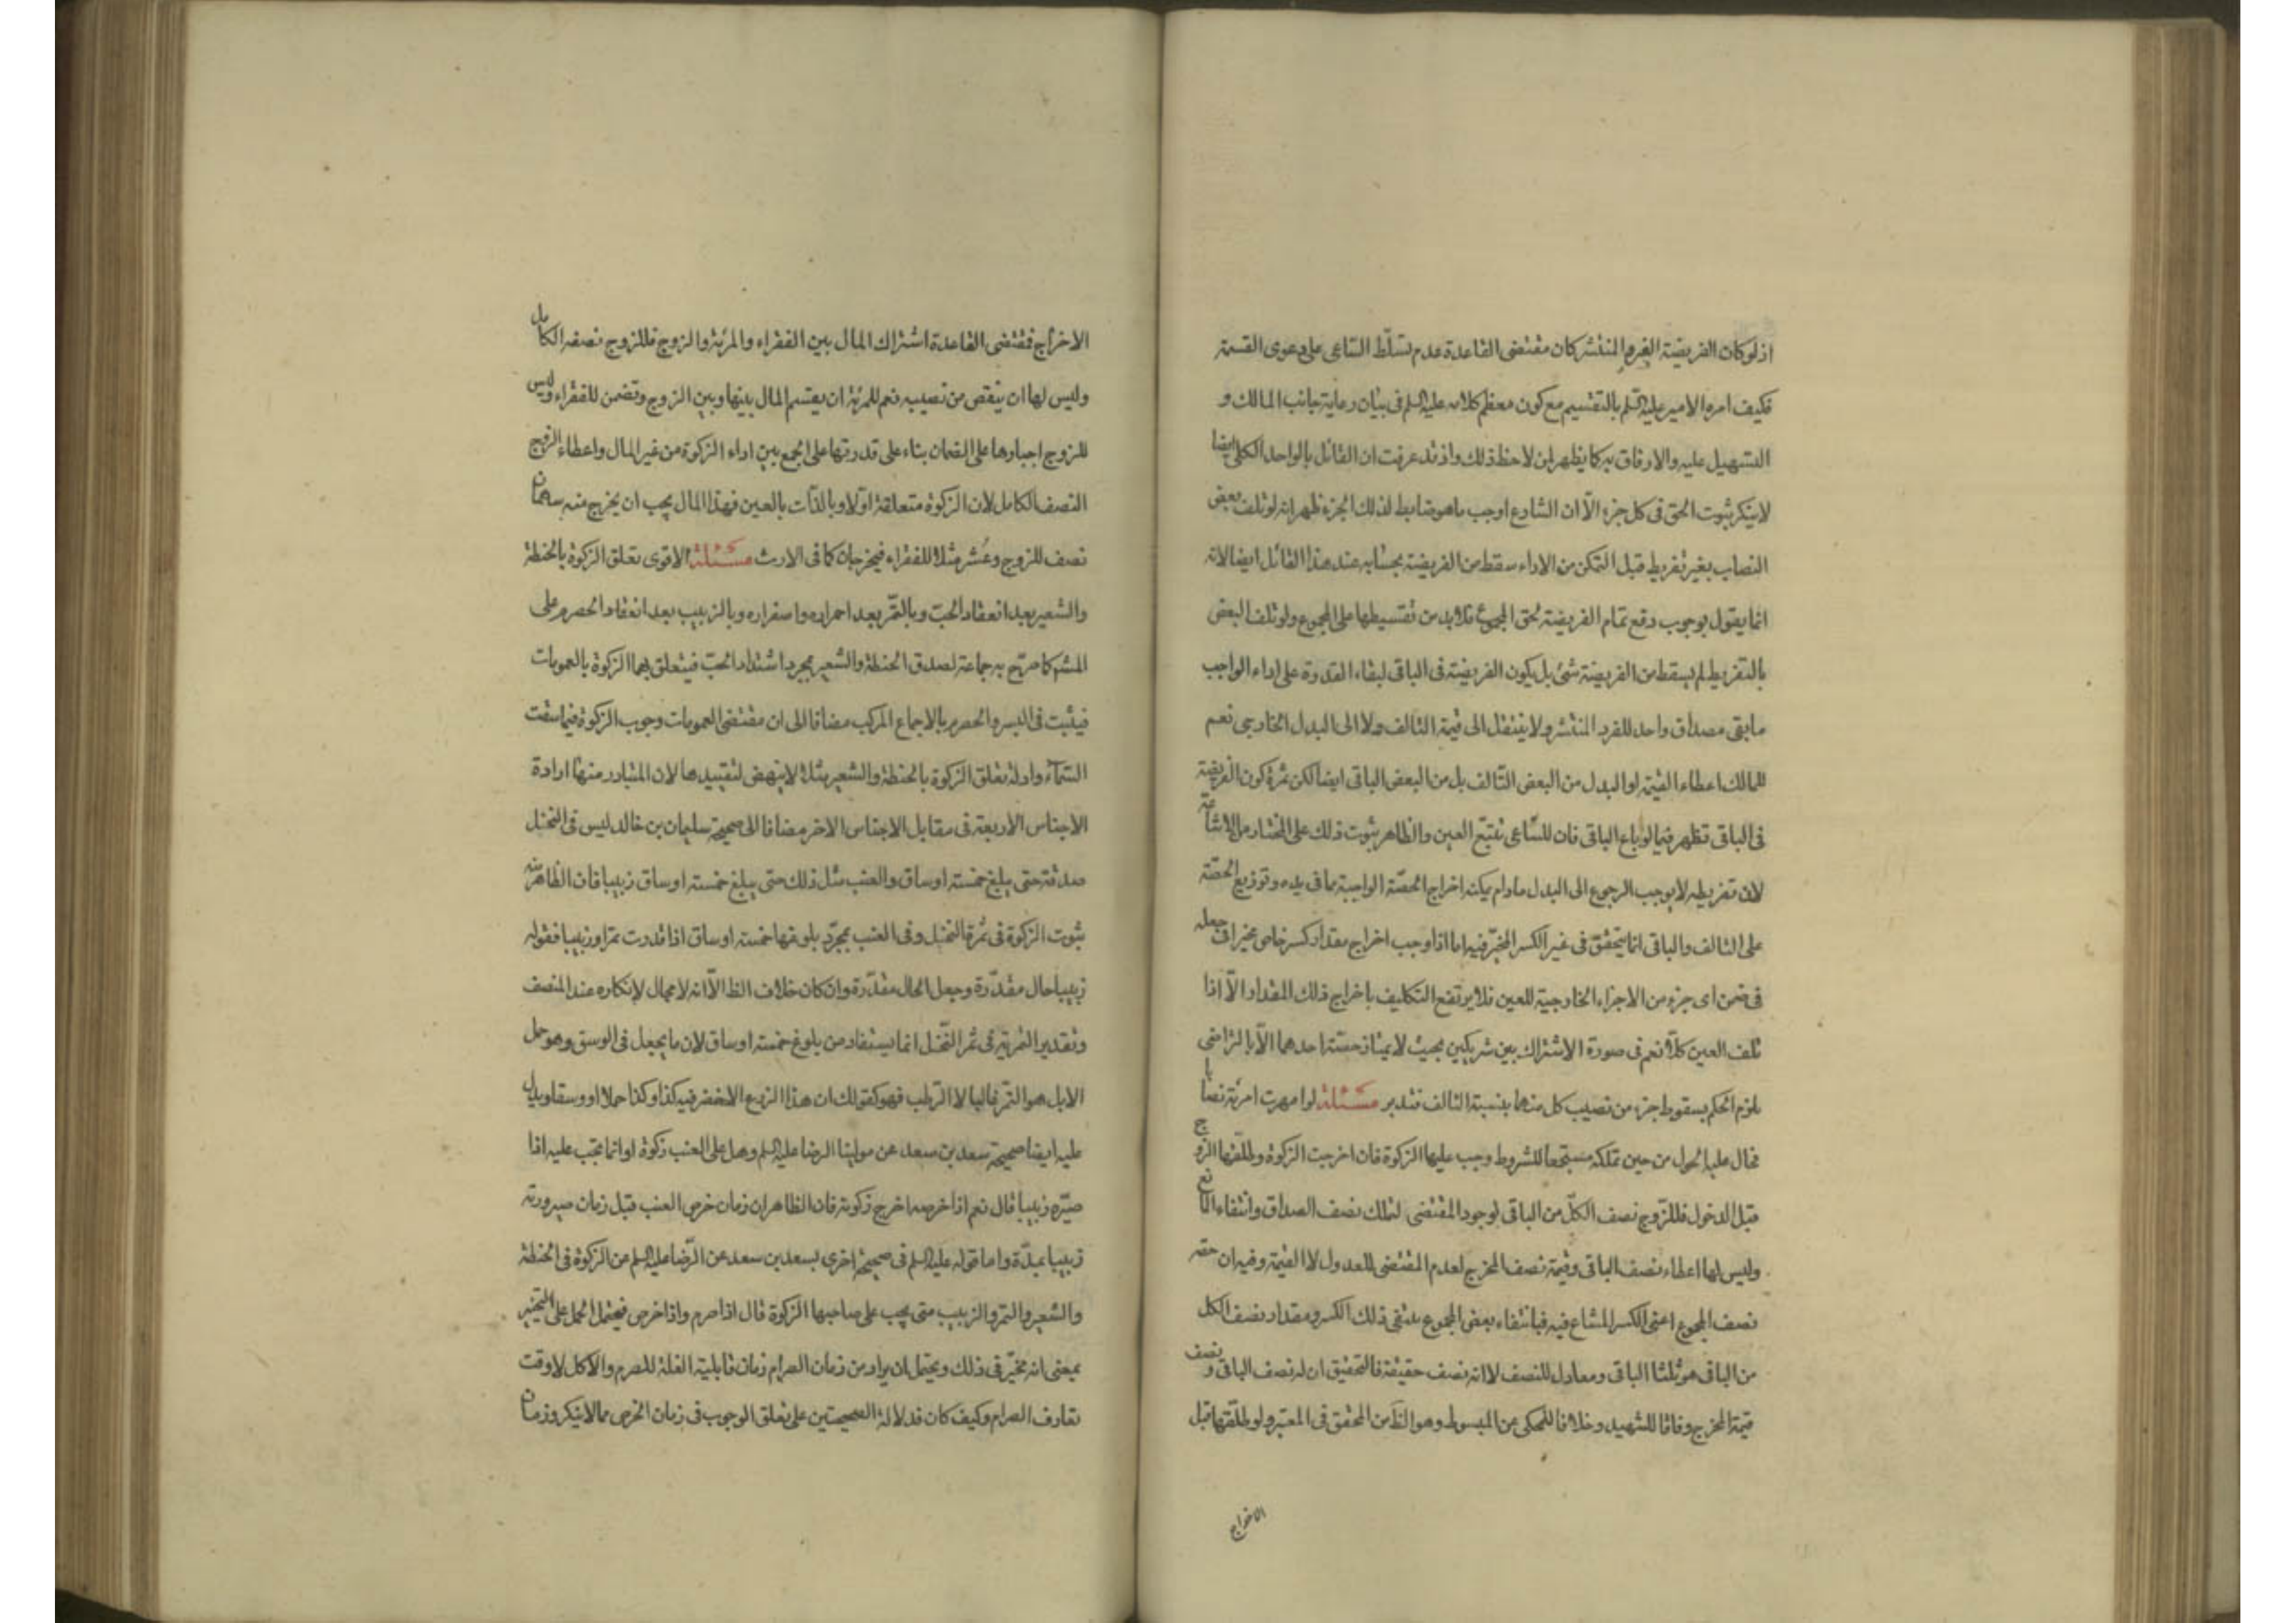 اذ لو كان الفريضة الفرد المنتشر كان مقتضى القاعدة عدم تسلّط السّاعى على دعوى القسمة
فكيف امره الامير عليه السّلم بالتقسيم مع كون معظم كلامه عليه السلم فى بيان رعاية جانب المالك و
التسهيل عليه والارفاق به كما يظهر لمن لاحظ ذلك واذ قد عرفت ان القائل بالواحد الكلى ايضا
لا ينكر ثبوت الحق فى كل جزء الّا ان الشارع اوجب ما هو ضابط لذلك الجزء ظهر انه لو تلف بعض
النصاب بغير تفريط قبل التمكن من الاداء سقط من الفريضة بحسابه عند هذا القائل ايضا لانه
انما يقول بوجوب دفع تمام الفريضة لحق المجموع فلا بد من تقسيطها على المجموع ولو تلف البعض
بالتفريط لم يسقط من الفريضة شئ بل يكون الفريضة فى الباقى لبقاء القدرة على اداء الواجب
ما بقى مصداق واحد للفرد المنتشر ولا ينتقل الى قيمة التالف ولا الى البدل الخارجى نعم
للمالك اعطاء القيمة او البدل من البعض التّالف بل من البعض الباقى ايضا لكن ثمرة كون الفريضة
فى الباقى تظهر فيما لو باع الباقى فان للسّاعى تتبّع العين والظاهر ثبوت ذلك على المختار من الاشاعة
لان تفريطه لا يوجب الرجوع الى البدل مادام يمكنه اخراج الحصّة الواجبة مما فى يده وتوزيع الحصّة
على التالف والباقى انما يتحقق فى غير الكسر المخيّر فيه اما اذا وجب اخراج مقدار كسر خاص مخيرا فى جعله
فى ضمن اى جزء من الاجزاء الخارجية للعين فلا يرتفع التكليف باخراج ذلك المقدار الّا اذا
تلف العين كلّا نعم فى صورة الاشتراك بين شريكين بحيث لا يمتاز حصّة احدهما الّا بالتراضى
يلزم الحكم بسقوط جزء من نصيب كل منهما بنسبة التالف فتدبر مسئلة لو امهرت امرئة نصابا
فحال عليه الحول من حين تملكه مستجمعا للشروط وجب عليها الزكوة فان اخرجت الزكوة وطلّقها الزوج
قبل الدخول فللزّوج نصف الكلّ من الباقى لوجود المقتضى لتملك نصف الصداق وانتفاء المانع
وليس لها اعطاء نصف الباقى وقيمة نصف المخرج لعدم المقتضى للعدول لا القيمة وفيه ان حقه
نصف المجموع اعنى الكسر المشاع فيه فبانتفاء بعض المجموع ينتفى ذلك الكسر ومقدار نصف الكل
من الباقى هو ثلثا الباقى ومعادل للنصف لا انه نصف حقيقة فالتحقيق ان له نصف الباقى ونصف
قيمة المخرج وفاقا للشهيد وخلافا للمحكى عن المبسوط وهو الظ من المحقق فى المعتبر ولو طلّقها قبل
الاخراج
الاخراج فمقتضى القاعدة اشتراك المال بين الفقراء والمرئة والزوج فللزوج نصفه الكامل
وليس لها ان ينقص من نصيبه نعم للمرئة ان يقتسم المال بينها وبين الزوج وتضمن للفقراء وليس
للزوج اجبارها على الضمان بناء على قدرتها على الجمع بين اداء الزكوة من غير المال واعطاء الزوج
النصف الكامل لان الزكوة متعلقة اوّلا وبالذّات بالعين فهذا المال يجب ان يخرج منه سهمان
نصف للزوج وعُشر مثلا للفقراء فيخرجان كما فى الارث مسئلة الاقوى تعلق الزكوة بالحنطة
والشعير بعد انعقاد الحبّ وبالتّمر بعد احمراره واصفراره وبالزبيب بعد انعقاد الحصرم على
المشهور كما صرّح به جماعة لصدق الحنطة والشعير بمجرد اشتداد الحبّ فيتعلق بهما الزكوة بالعمومات
فيثبت فى البسر والحصرم بالاجماع المركب مضافا الى ان مقتضى العمومات وجوب الزكوة فيما سقت
السّماء وادلة تعلق الزكوة بالحنطة والشعير مثلا لا ينهض لتقييدها لان المتبادر منها ارادة
الاجناس الاربعة فى مقابل الاجناس الاخر مضافا الى صحيحة سليمان بن خالد ليس فى النخل
صدقة حتى يبلغ خمسة اوساق والعنب مثل ذلك حتى يبلغ خمسة اوساق زبيبا فان الظاهر منه
ثبوت الزكوة فى ثمرة النخل وفى العنب بمجرّد بلوغها خمسة اوساق اذا قدرت تمرا وزبيبا فقوله
زبيبا حال مقدّرة وجعل الحال مقدّرة وان كان خلاف الظ الّا انه لا مجال لإنكاره عند المنصف
وتقدير التمرية فى ثمر النّخل انما يستفاد من بلوغ خمسة اوساق لان ما يجعل فى الوسق وهو حمل
الابل هو التمر غالبا لا الرّطب فهو كقولك ان هذا الزرع الاخضر فيه كذا وكذا حملا او وسقا ويدل
عليه ايضا صحيحة سعد بن سعد عن مولينا الرضا عليه السلم وهل على العنب زكوة او انما تجب عليه اذا
صيّره زبيبا قال نعم اذا خرصه اخرج زكوته فان الظاهر ان زمان خرص العنب قبل زمان صيرورته
زبيبا بمدّة واما قوله عليه السلم فى صحيحة اخرى لسعد بن سعد عن الرّضا عليه السلم من الزكوة فى الحنطة
والشعير والتمر والزبيب متى يجب على صاحبها الزكوة قال اذا صرم واذا خرص فيحتمل الحمل على التخيير
بمعنى انه مخيّر فى ذلك ويحتمل ان يراد من زمان الصرام زمان قابلية الغلة للصرم والاكل لا وقت
تعارف الصرام وكيف كان فدلالة الصحيحتين على تعلق الوجوب فى زمان الخرص مما لا ينكر وزمان